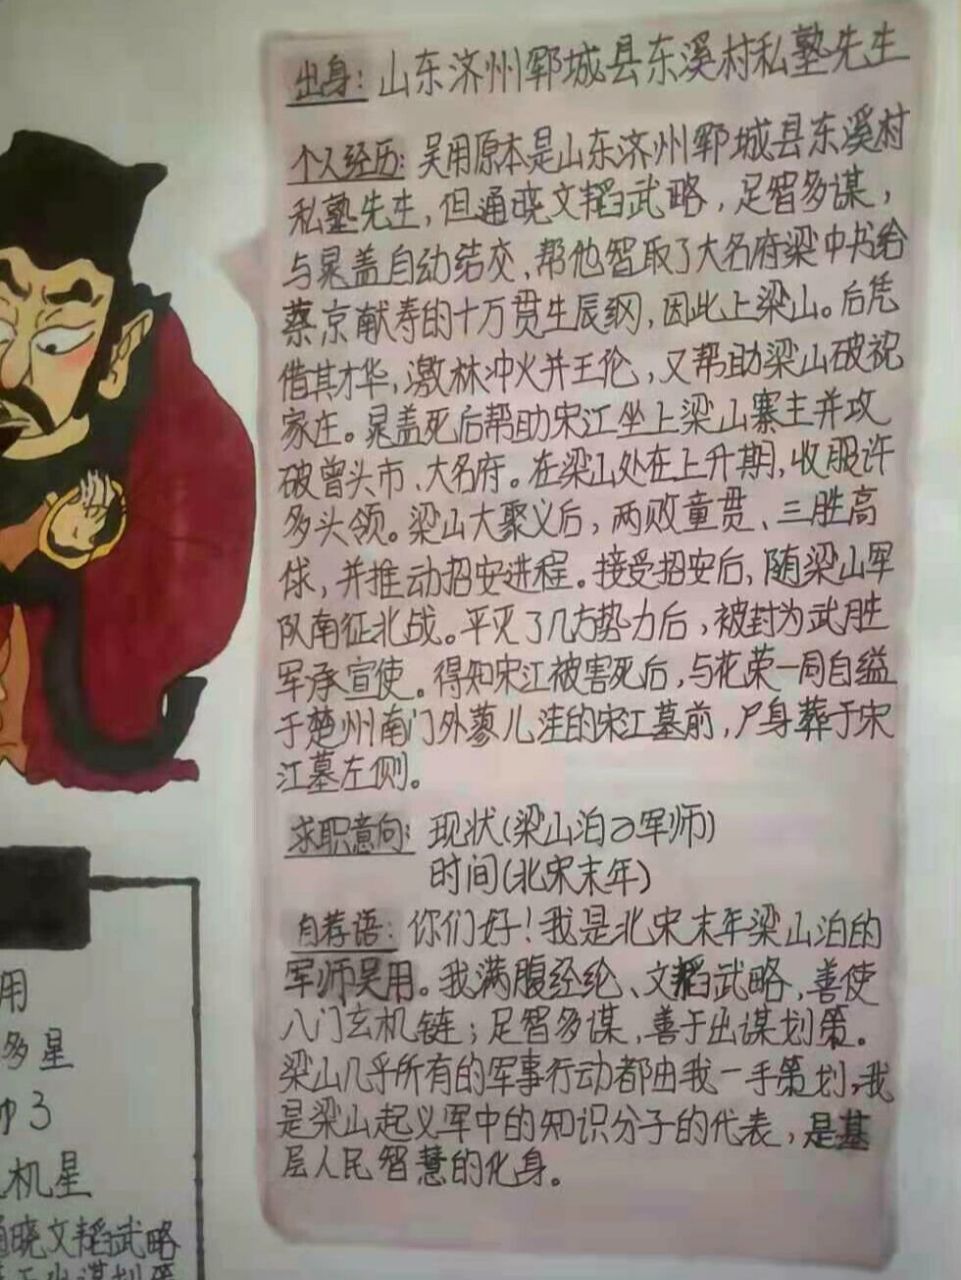 出身：山东济州郓城县东溪村私塾先生
个人经历：吴用原本是山东济州郓城县东溪村
私塾先生，但通晓文韬武略，足智多谋，
与晁盖自动结交，帮他智取了大名府梁中书给
蔡京献寿的十万贯生辰纲，因此上梁山。后凭
借其才华，激林冲火并王伦，又帮助梁山破祝
家庄。晁盖死后帮助宋江坐上梁山寨主并攻
破曾头市、大名府。在梁山处在上升期，收服许
多头领。梁山大聚义后，两败童贯、三胜高
俅，并推动招安进程。接受招安后，随梁山军
队南征北战。平灭了几方势力后，被封为武胜
军承宣使。得知宋江被害死后，与花荣一同自缢
于楚州南门外蓼儿洼的宋江墓前，尸身葬于宋
江墓左侧。
求职意向：现状(梁山泊の军师)
时间(北宋末年)
自荐语：你们好！我是北宋末年梁山泊的
军师吴用。我满腹经纶、文韬武略，善使
八门玄机链；足智多谋，善于出谋划策。
梁山几乎所有的军事行动都由我一手策划，我
是梁山起义军中的知识分子的代表，是基
层人民智慧的化身。
用
多星
3
机星
通晓文韬武略